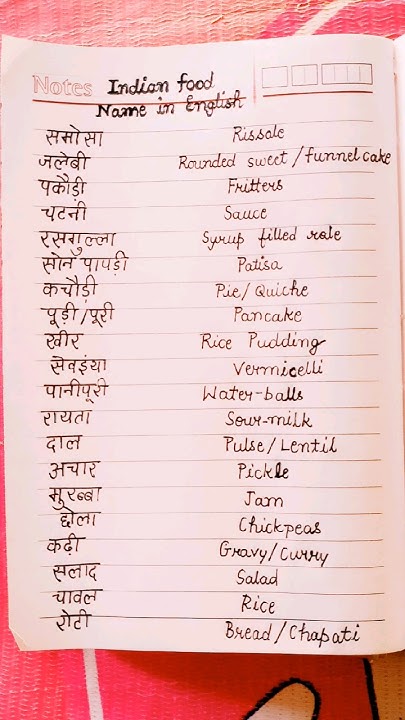 Notes Indian food
Name in English
समोसा Rissole
जलेबी Rounded sweet/funnel cake
पकौड़ी Fritters
चटनी Sauce
रसगुल्ला Syrup filled role
सोन पापड़ी Patisa
कचौड़ी Pie/Quiche
पूड़ी/पूरी Pancake
खीर Rice Pudding
सेवइंया Vermicelli
पानीपूरी Water-balls
रायता Sour-milk
दाल Pulse/Lentil
अचार Pickle
मुरब्बा Jam
छोला Chickpeas
कढ़ी Gravy/Curry
सलाद Salad
चावल Rice
रोटी Bread/Chapati